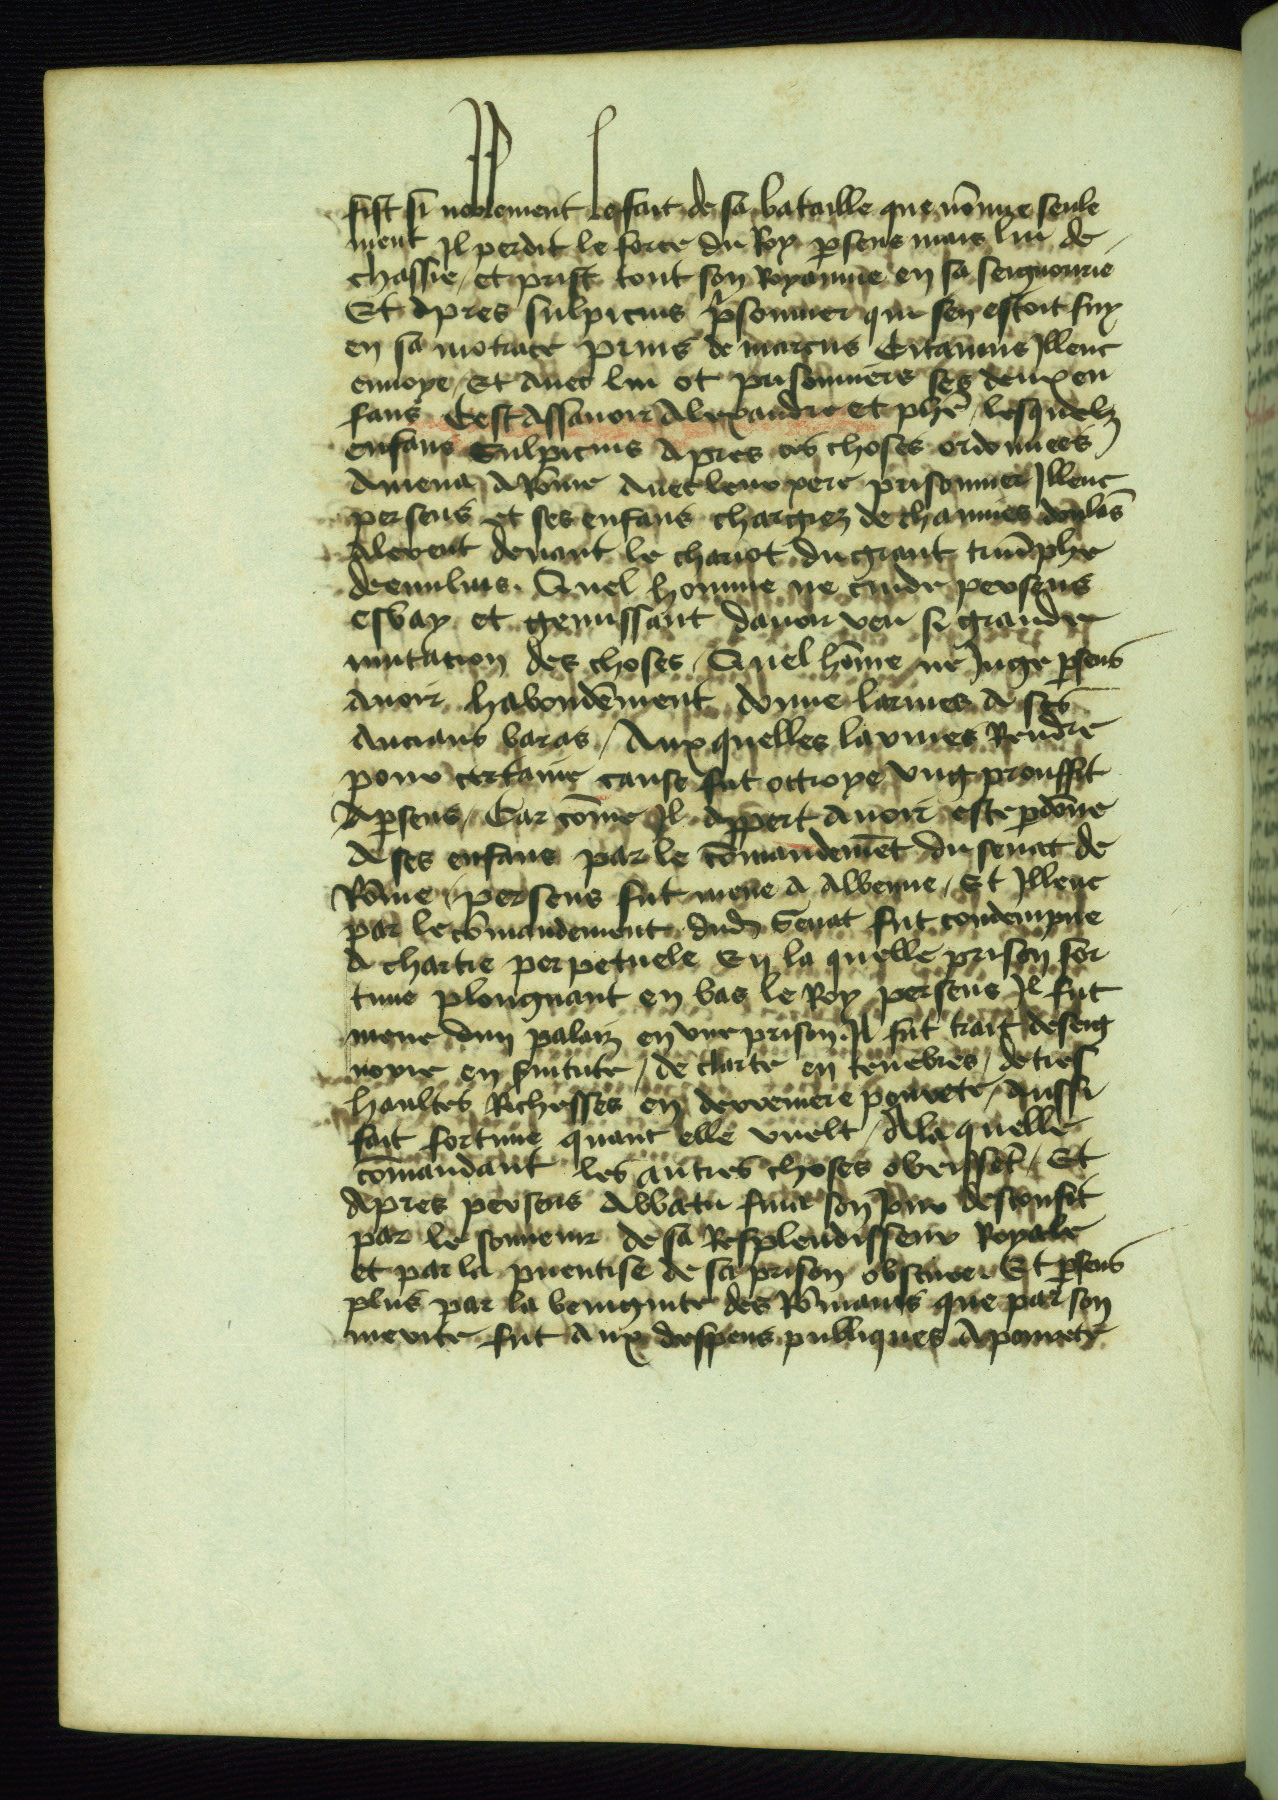 fist si noblement le fait de sa bataille que nōnue seule
ment Il perdit le force du Roy p̲seus mais lui de
chassie / et prist tout son Royaume en sa seignourie
Et Apres sulpicius p̲sonnier qui sen estoit fuy
en sa motrace prins de marcus Citanius Illenc
enuoye / Et Auec lui ot prisonniers ses deux en
fans Cest Assauoir Alexandre et phē / lesquelz
enfans Sulpicius Apres ces choses ordonnees
Amena A Rōme Auec leur pere prisonnier Illenc
perseus et ses enfans chargiez de chainnes doulās
Alerent deuant le chariot du grant triūphe
de emilius. Quel homme ne cuide perseus
esbay et gemissant dauoir veu si grande
mutacion des choses / Quel hōme ne Iuge p̲seus
Auoir habondēment donne larmes A ses
Ancians baras / Aux quelles larmes Rendre
pour certaine cause fut ottroye vng prouffit
A p̲seus / Car cōme Il Appert Auoir este p̲dōne
A ses enfans par le cōmandemēt du senat de
Rōme / perseus fut mene A Albenne / Et Illenc
par le cōmandement dud̄ Senat fut condempne
A chartre perpetuele En la quelle prison for
tune plongnant en bas le Roy perseus Il fut
mene dun palaiz en vne prison. Il fut trait de seig
nourie en s̲uitute / de clarte en tenebres / de tres
haultes Richesses en derreniere pourete / Aussi
fait fortune quant elle vuelt / A la quelle
cōmandant les autres choses obeissēt / Et
Apres perseus Abbatu finit son Iour desconfit
par le souuenir de sa Resplendisseur Royale
et par la puentise de sa prison obscure Et p̲seus
plus par la benignite des Rōmains que par son
merite fut Aux despens publiques A pourete